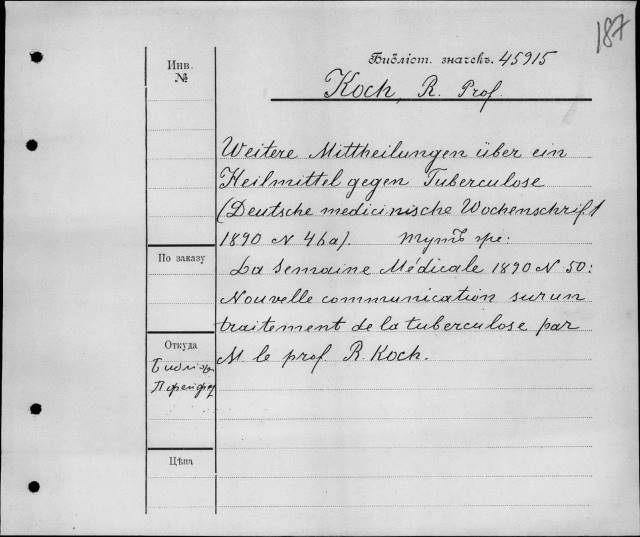 187
Библіот. значекъ. 45915
Инв.
№
Koch, R. Prof.
Weitere Mittheilungen über ein
Heilmittel gegen Tuberculose
(Deutsche medicinische Wochenschrift
1890 N 46a). тутъ же:
По заказу
La Semaine Médicale 1890 N 50:
Nouvelle communication sur un
traitement de la tuberculose par
Откуда
M. le prof. R. Koch.
Цѣна